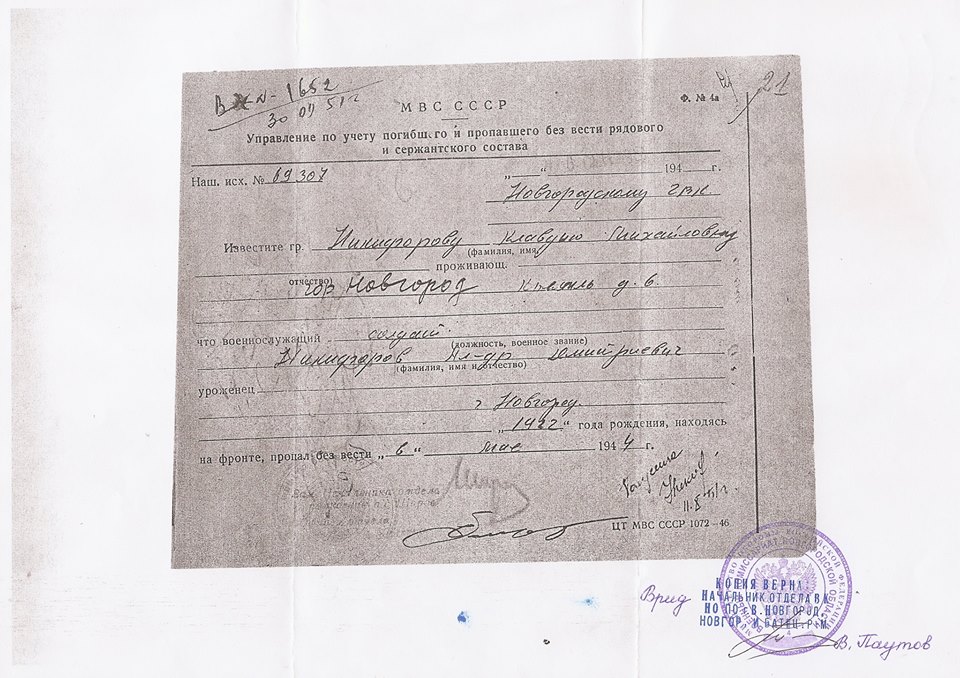 ВХ №- 1652
30 04 51 г
21
МВС СССР
Ф. № 4а
Управление по учету погибшего и пропавшего без вести рядового
и сержантского состава
Наш. исх. № 69307
„ “ 194 г.
Новгородскому ГВК
Известите гр. Никифорову Клавдию Михайловну
(фамилия, имя,
отчество) проживающ.
гор Новгород Кремль д. 6.
что военнослужащий солдат.
(должность, военное звание)
Никифоров Ал-др Дмитриевич
(фамилия, имя и отчество)
уроженец
г Новгород.
„1922“ года рождения, находясь
на фронте, пропал без вести „в“ мае 1944 г.
Зам. Начальника отдела
Получила
ЦТ МВС СССР 1072–46
КОПИЯ ВЕРНА:
Врид НАЧАЛЬНИК ОТДЕЛА ВК
НО ПО В. НОВГОРОД,
НОВГОР. И БАТЕЦ. Р-М
В. Паутов